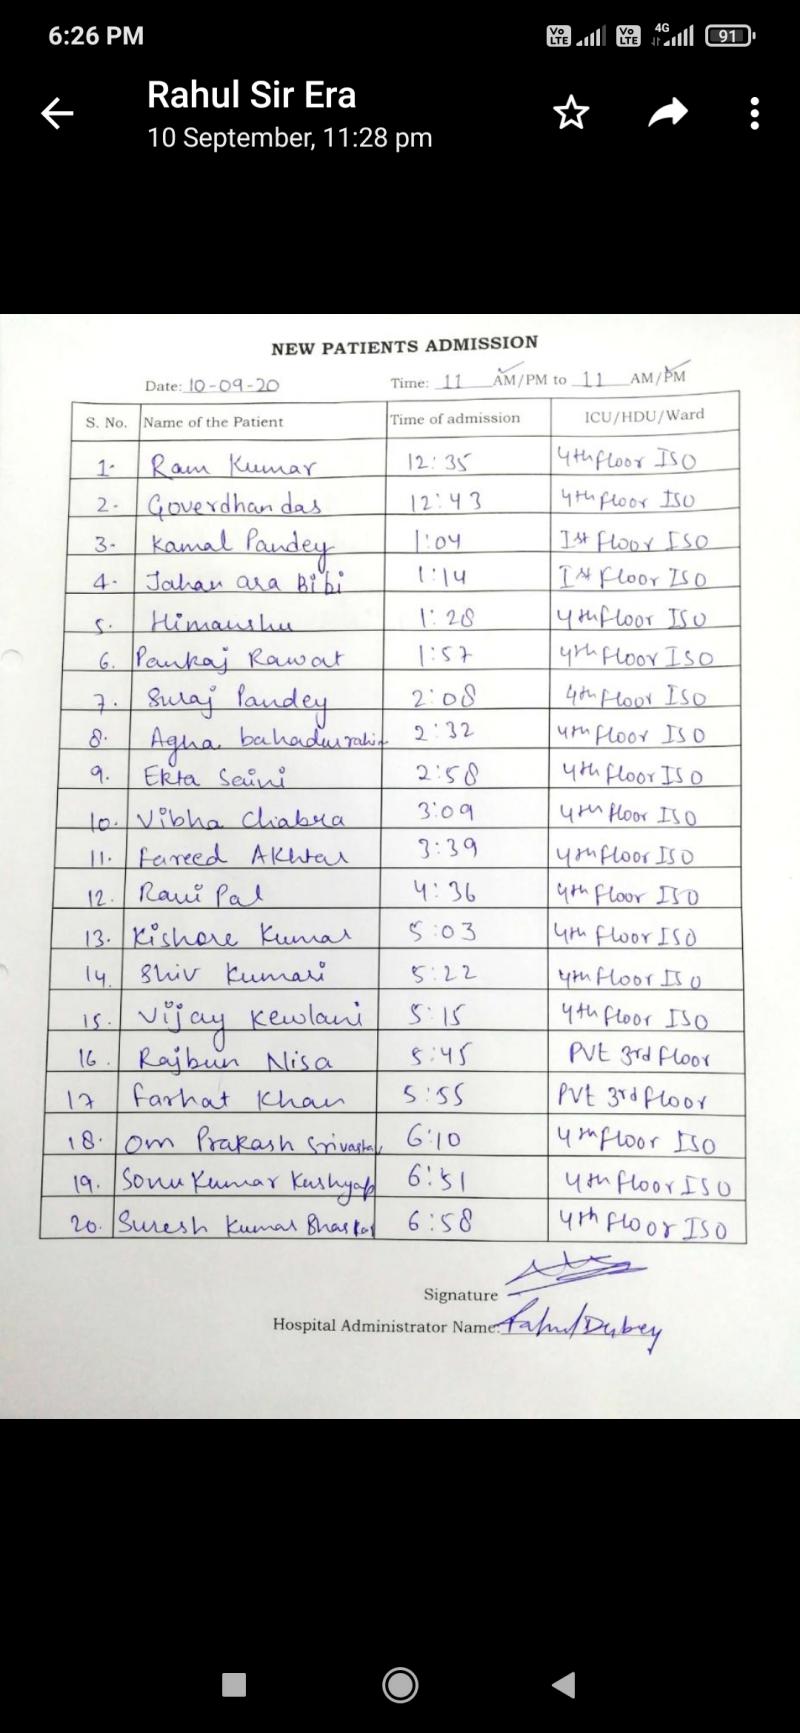 6:26 PM Vo LTE Vo LTE 4G 91
Rahul Sir Era
10 September, 11:28 pm
NEW PATIENTS ADMISSION
Date: 10-09-20 Time: 11 AM/PM to 11 AM/PM
S. No. Name of the Patient Time of admission ICU/HDU/Ward
1- Ram Kumar 12:35 4th floor ISO
2- Goverdhan das 12:43 4th floor ISO
3- Kamal Pandey 1:04 Ist Floor ISO
4- Jahan ara Bibi 1:14 Ist Floor ISO
5. Himanshu 1:28 4th floor ISO
6. Pankaj Rawat 1:57 4th floor ISO
7. Suraj Pandey 2:08 4th floor ISO
8. Agha bahadur 2:32 4th floor ISO
9. Ekta Saini 2:58 4th floor ISO
10. Vibha Chabra 3:09 4th floor ISO
11. Fareed Akhtar 3:39 4th floor ISO
12. Pal 4:36 4th floor ISO
13. Kishore Kumar 5:03 4th floor ISO
14. Shiv Kumari 5:22 4th floor ISO
15. Vijay Kewlani 5:15 4th floor ISO
16. Rajbun Nisa 5:45 PVT 3rd floor
17 Farhat Khan 5:55 PVT 3rd floor
18. Om Prakash Srivastav 6:10 4th floor ISO
19. Sonu Kumar Kashyap 6:51 4th floor ISO
20. Suresh Kumar Bhaskar 6:58 4th floor ISO
Signature
Hospital Administrator Name: Rahul Dubey